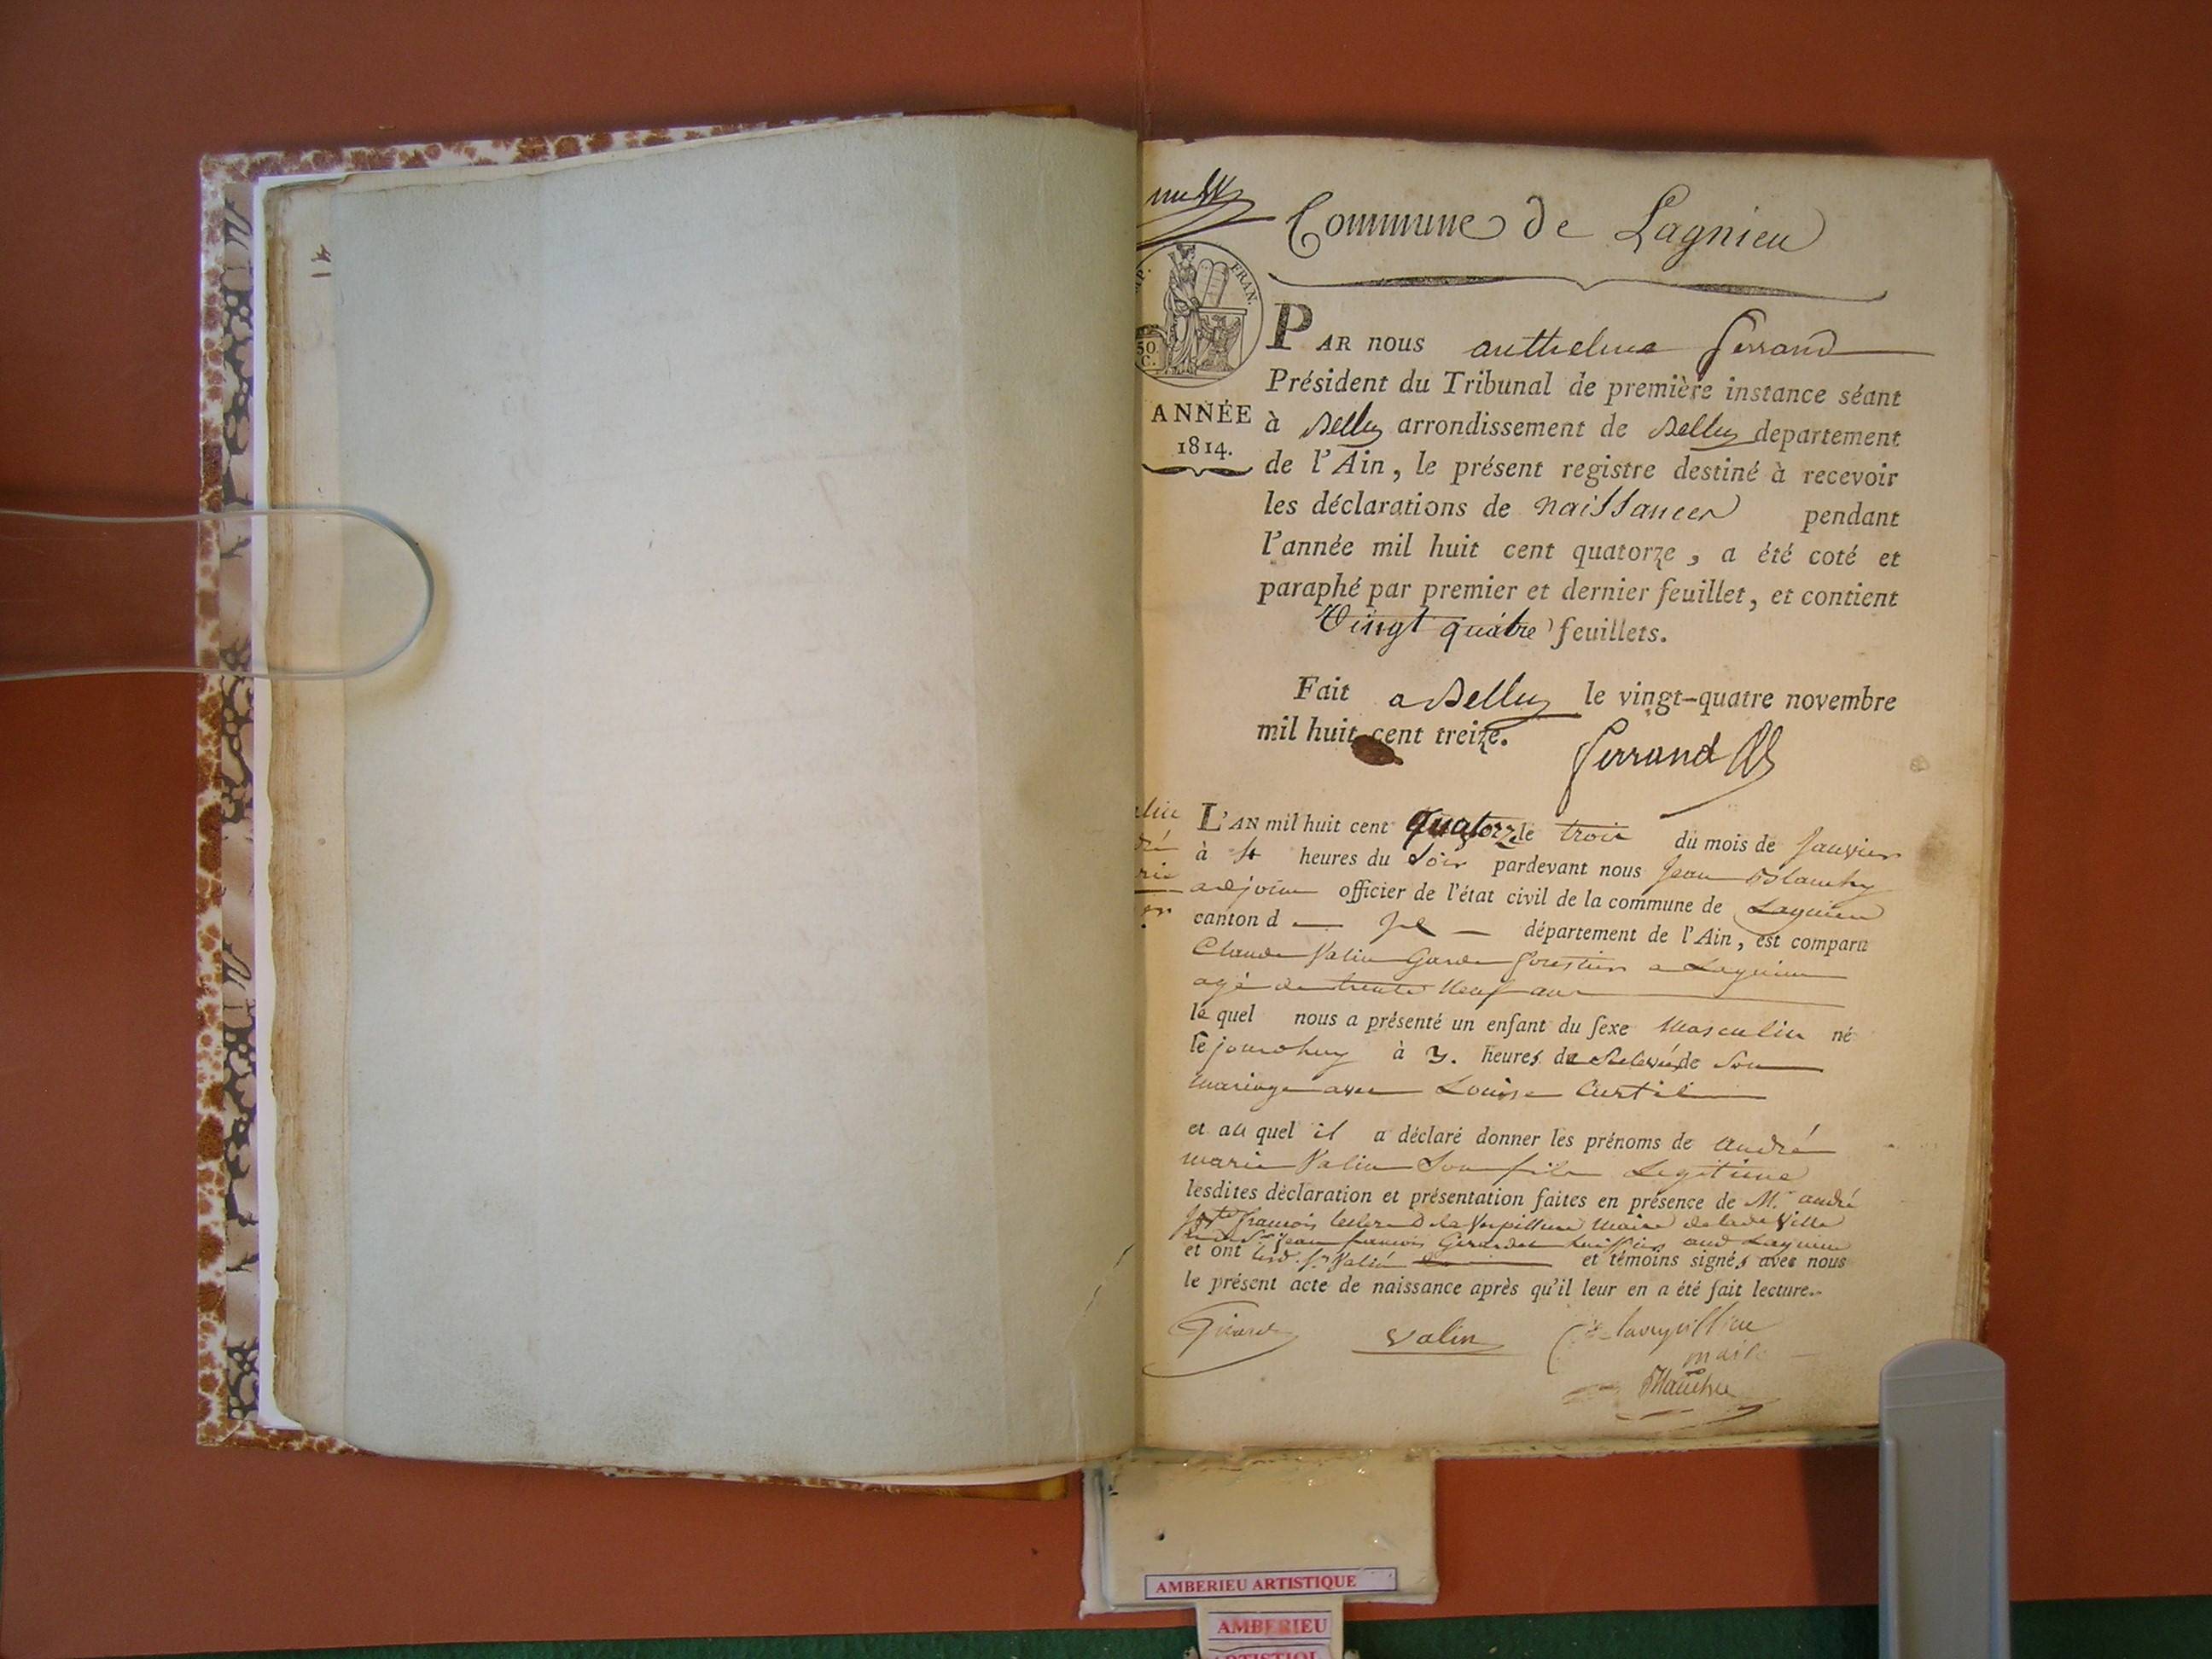 Commune de Lagnieu
FRAN.
50
C.
ANNÉE
1814.
PAR nous anthelme ferrand
Président du Tribunal de première instance séant
à Belley arrondissement de Belley departement
de l'Ain, le présent registre destiné à recevoir
les déclarations de naissances pendant
l'année mil huit cent quatorze, a été coté et
paraphé par premier et dernier feuillet, et contient
Vingt quatre feuillets.
Fait a Belley le vingt-quatre novembre
mil huit cent treize.
ferrand
L'AN mil huit cent quatorze le trois du mois de Janvier
à 4 heures du Soir pardevant nous Jean Blanchy
adjoint officier de l'état civil de la commune de Lagnieu
canton d département de l'Ain, est comparu
Claude Valin Garde forestier a Lagnieu
agé de trente Neuf ans
le quel nous a présenté un enfant du sexe Masculin né
le jourdhuy à 3. heures de de Son
mariage avec Louise Curtil
et au quel il a déclaré donner les prénoms de André
marie Valin Son fils Legitime
lesdites déclaration et présentation faites en présence de Mr. andré
françois de la Verpilliere Maire de Ville
Sr. jean francois Girardet huissier aud Lagnieu
et ont led. Sr. Valin et témoins signés avec nous
le présent acte de naissance après qu'il leur en a été fait lecture.
valin
maire
AMBERIEU ARTISTIQUE
AMBERIEU
ARTISTIQUE